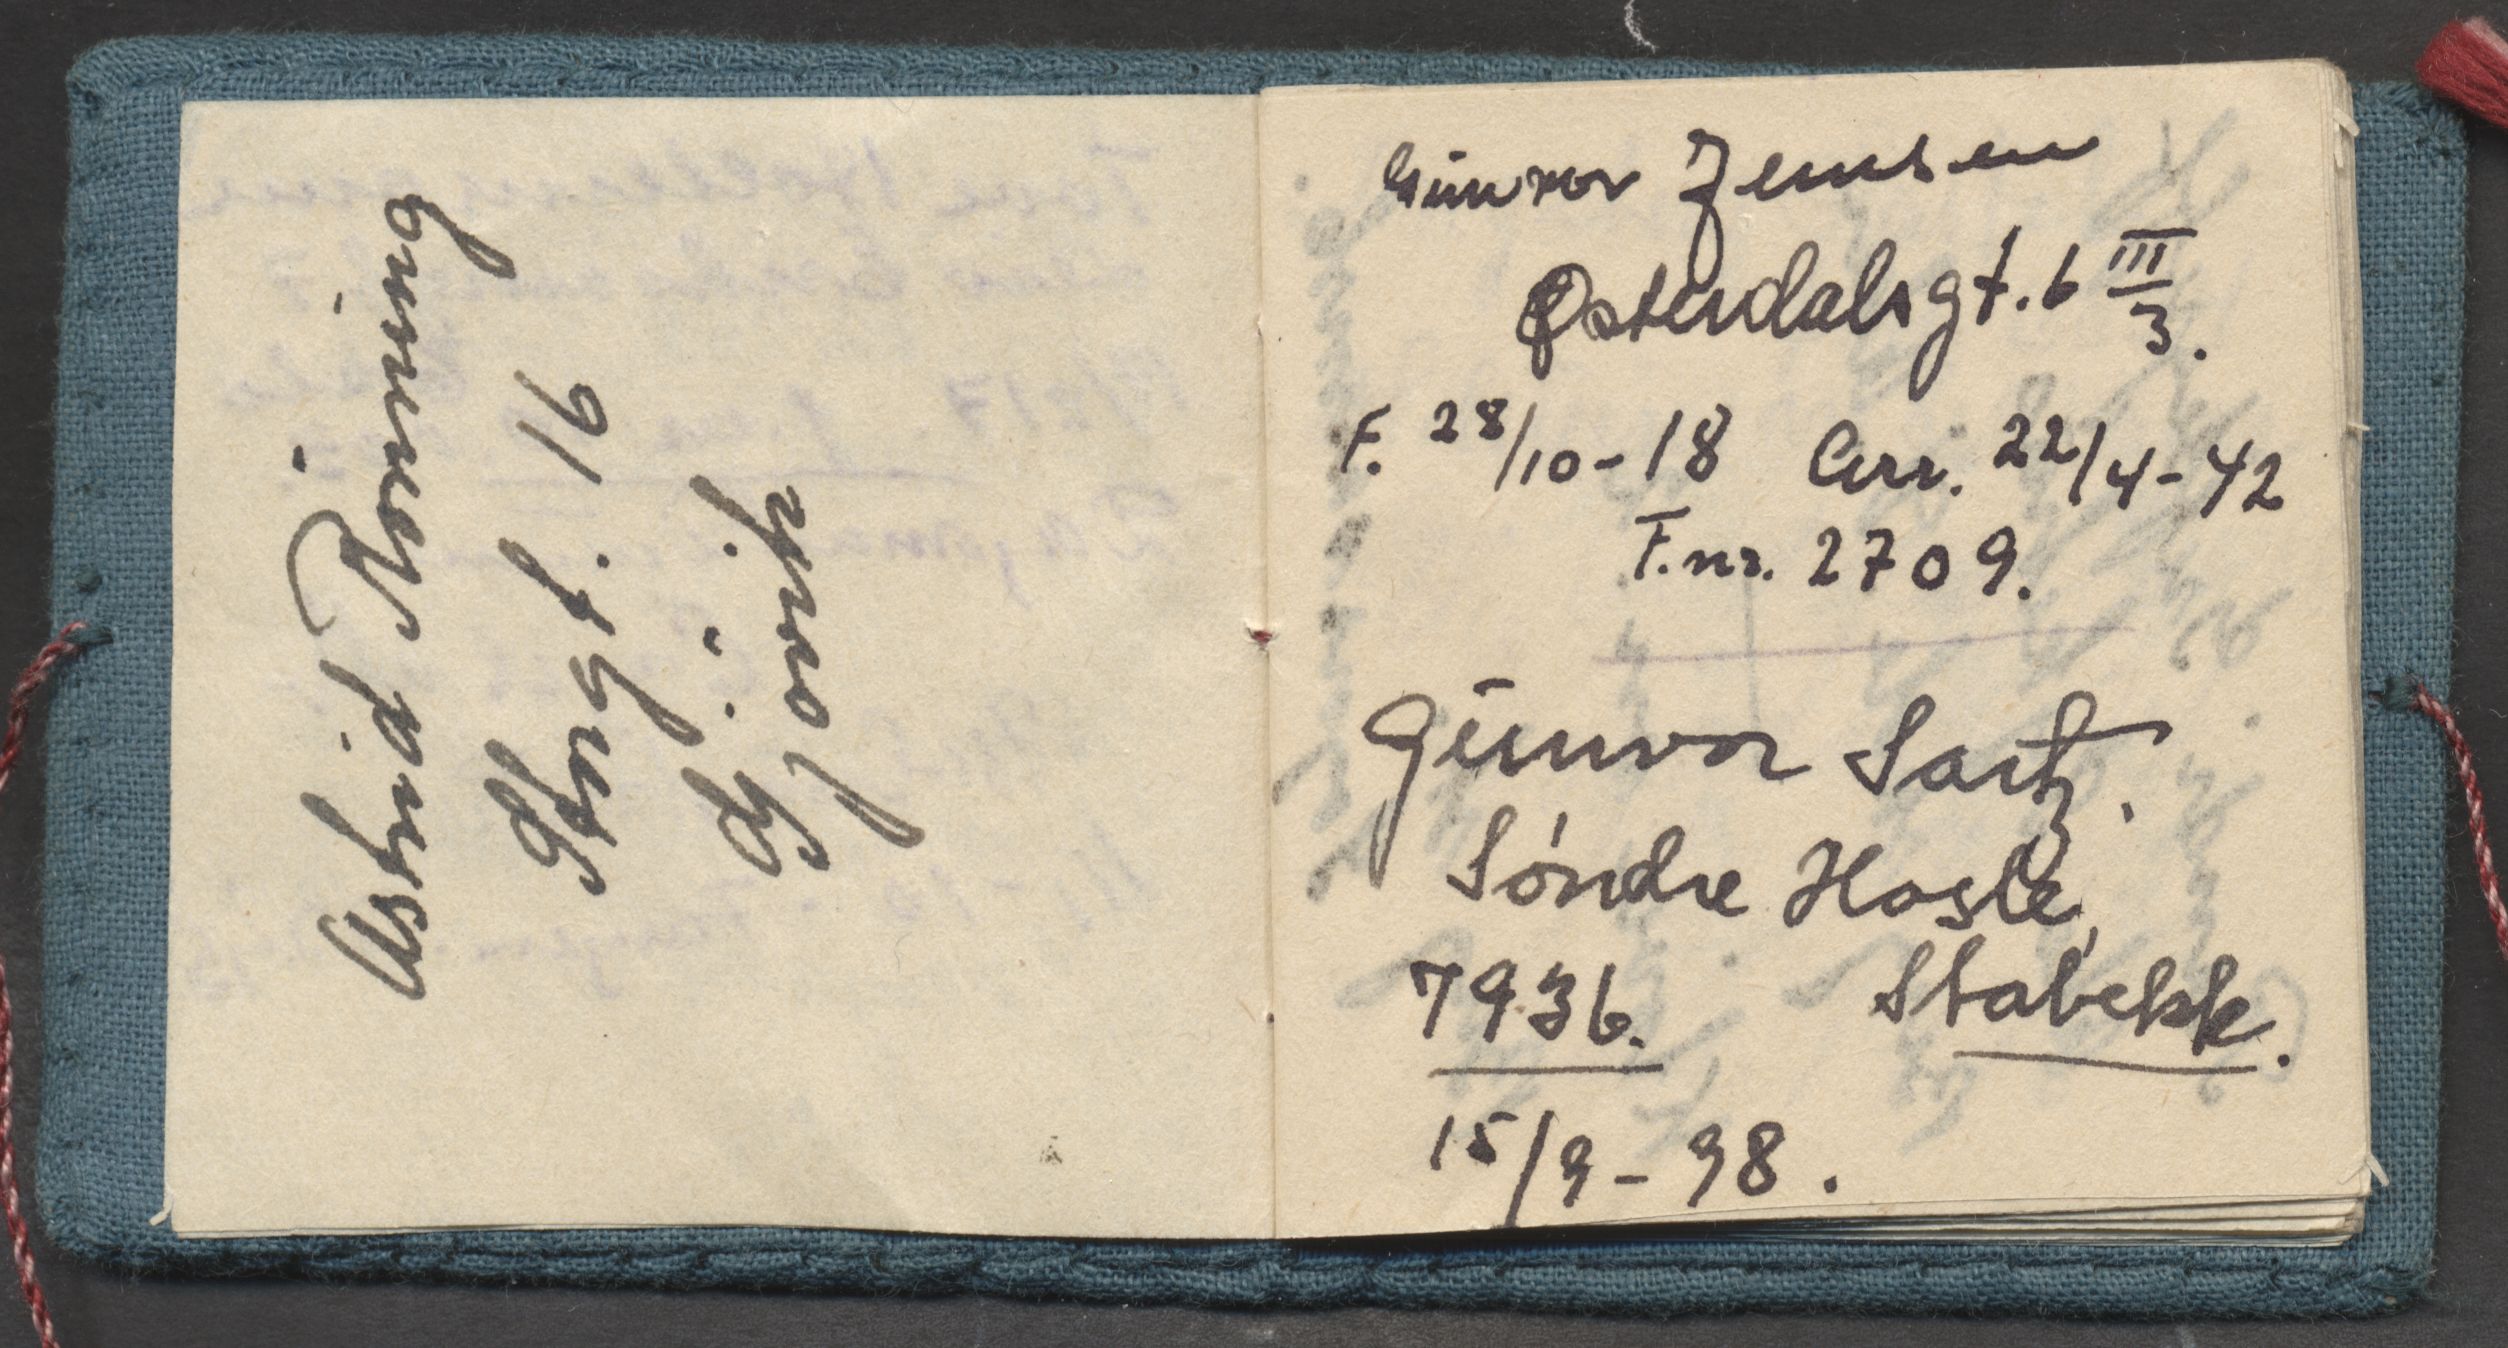 Astrid Rønning
Storgt. 16
Gjøvik
Gunvor Jensen
Østerdalsgt. 6 III/3.
F. 28/10-18 Arr. 22/4-42
F.nr. 2709.
Gunvor Sartz.
Søndre Hosle,
7936. Stabekk.
15/9-98.